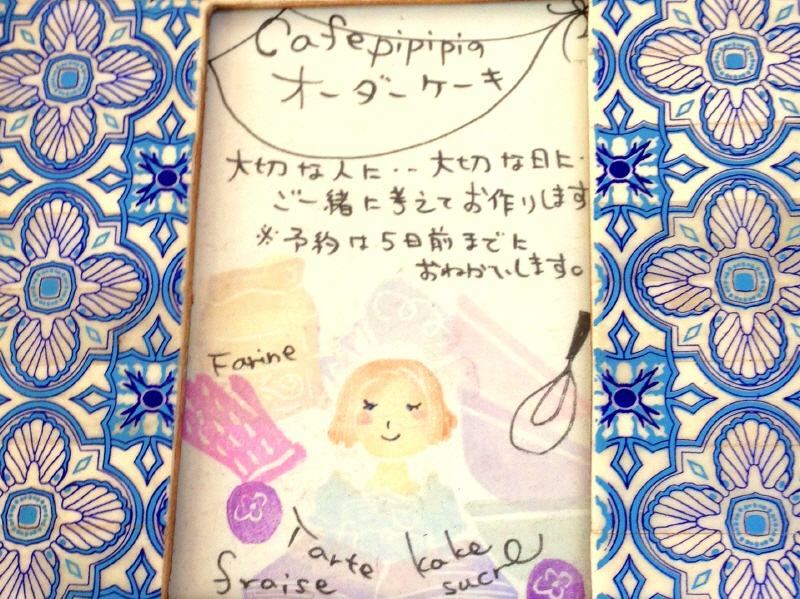 Cafe pipipia
オーダーケーキ
大切な人に‥大切な日に‥
ご一緒に考えてお作りします
※予約は5日前までに
おねがいします。
Farine
Tarte
kake
fraise
sucre